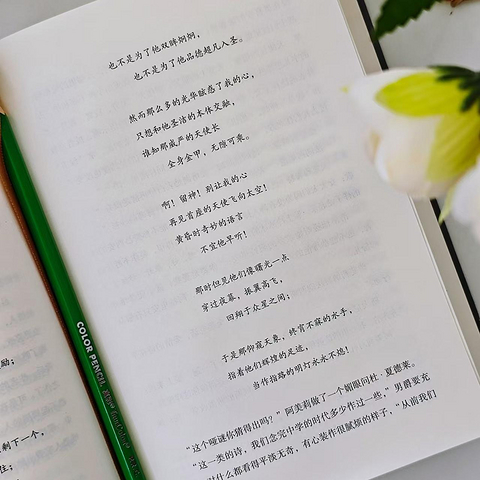 也不是为了他双眸炯炯，
也不是为了他品德超凡入圣。
然而那么多的光华眩惑了我的心，
只想和他圣洁的本体交融，
谁知那威严的天使长
全身金甲，无隙可乘。
啊！留神！别让我的心
再见首座的天使飞向太空！
黄昏时奇妙的语言
不宜他早听！
那时但见他们像曙光一点
穿过夜幕，振翼高飞，
回翔于众星之间；
于是那仰窥天象，终宵不寐的水手，
指着他们辉煌的足迹，
当作指路的明灯永永不熄！
“这个哑谜你猜得出吗？”阿美莉做了一个媚眼问杜·夏德莱。
“这一类的诗，我们念完中学的时代多少作过一些，”男爵要充
什么都看得平淡无奇，有心装作很腻烦的样子，“从前我们
励；
剩下一个，
住；
COLOR PENCIL